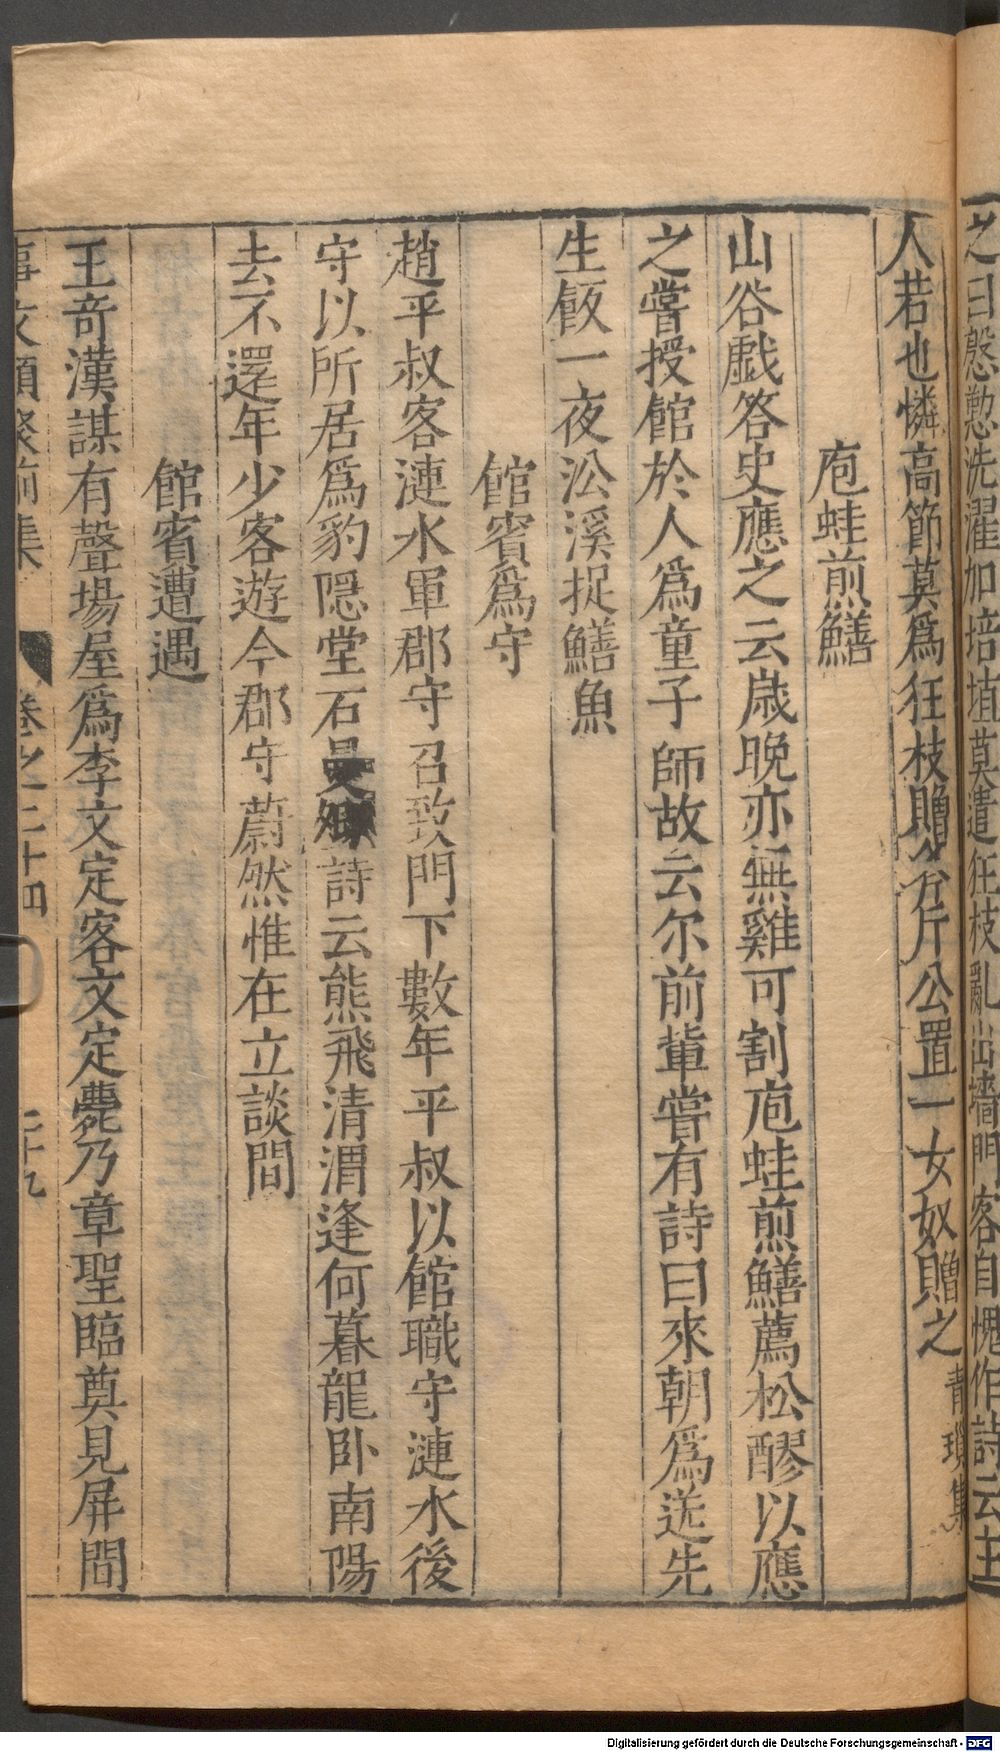 之曰慇懃洗濯加培埴莫遣狂枝亂出墻門客自愧作詩云主
人若也憐高節莫爲狂枝贈斧斤公置一女奴贈之青瑣集
庖蛙煎鱔
山谷戱答史應之云歲晚亦無雞可割庖蛙煎鱔薦松醪以應
之嘗授館於人爲童子師故云尔前輩嘗有詩曰來朝爲送先
生飯一夜㳂溪捉鱔魚
館賓爲守
趙平叔客漣水軍郡守召致門下數年平叔以館職守漣水後
守以所居爲豹隱堂石曼卿詩云熊飛清渭逢何暮龍卧南陽
去不還年少客遊今郡守蔚然惟在立談間
館賓遭遇
王奇漢謀有聲場屋爲李文定客文定薨乃章聖臨奠見屏間
事文類聚前集 卷之二十四 二十九
Digitalisierung gefördert durch die Deutsche Forschungsgemeinschaft - DFG